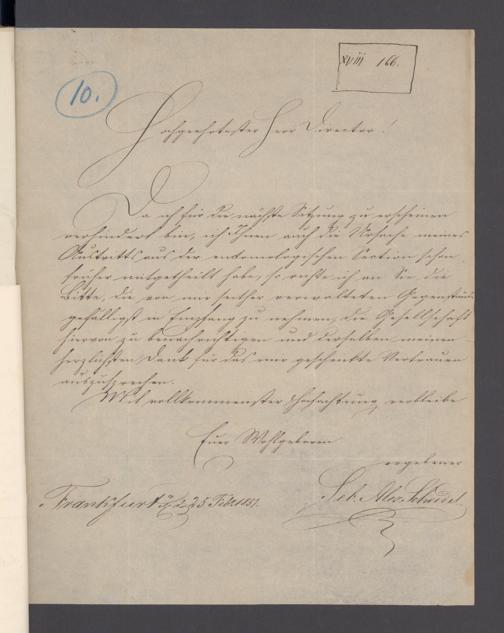 XVIII 166.
10.
Hochgeehrtester Herr Director!
Da ich für die nächste Sitzung zu erscheinen
verhindert bin, ich Ihnen auch die Ursache meines
Austritts aus der entomologischen Section schon
früher mitgetheilt habe, so richte ich an Sie die
Bitte, die von mir seither verwalteten Gegenstände
gefälligst in Empfang zu nehmen, die Gesellschaft
hiervon zu benachrichtigen und derselben meinen
herzlichsten Dank für das mir geschenkte Vertrauen
auszusprechen.
Mit vollkommenster Hochachtung verbleibe
Euer Wohlgeboren
ergebener
Frankfurt 25 Febr.
Alex.